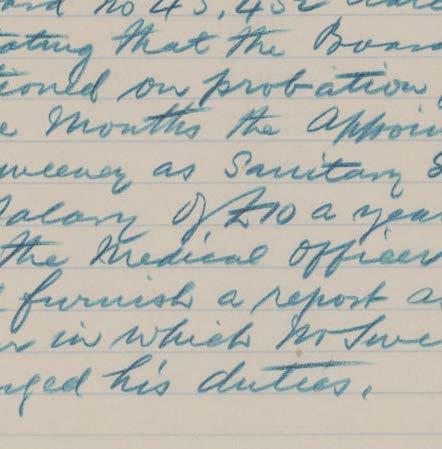 No 43,452
ating that the Boar
tioned on probation
e Months the Appoin
weeney as Sanitary S
Salary of £10 a year
the Medical Officer
furnish a report a
in which Mr Swe
nged his duties.